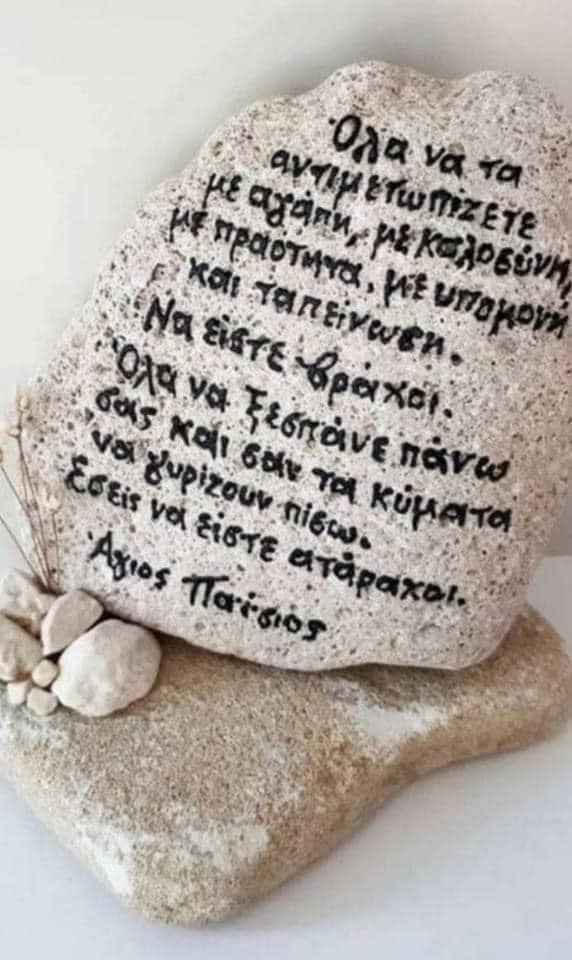 Όλα να τα
αντιμετωπίζετε
με αγάπη, με καλοσύνη,
με πραότητα, με υπομονή
και ταπείνωση.
Να είστε βράχοι.
Όλα να ξεσπάνε πάνω
σας και σαν τα κύματα
να γυρίζουν πίσω.
Εσείς να είστε ατάραχοι.
Άγιος Παΐσιος